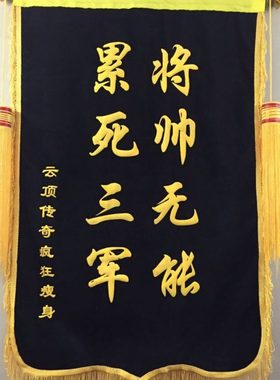 将帅无能
累死三军
云顶传奇疯狂瘦身